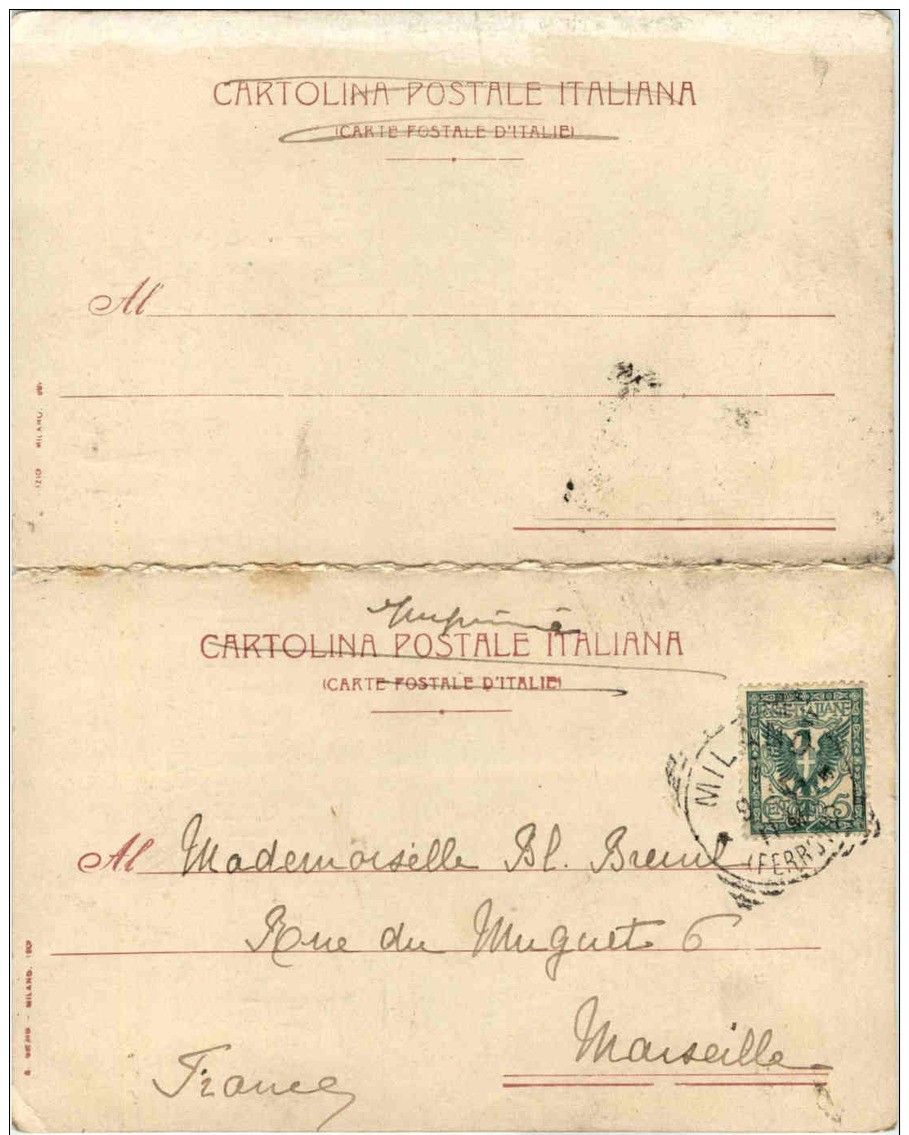 CARTOLINA POSTALE ITALIANA
(CARTE POSTALE D'ITALIE)
Al
MILANO
Imprimé
CARTOLINA POSTALE ITALIANA
(CARTE POSTALE D'ITALIE)
POSTE ITALIANE
5
MIL
(FERR
Al Mademoiselle Bl.
Rue du Muguet 6
Marseille
France
MILANO